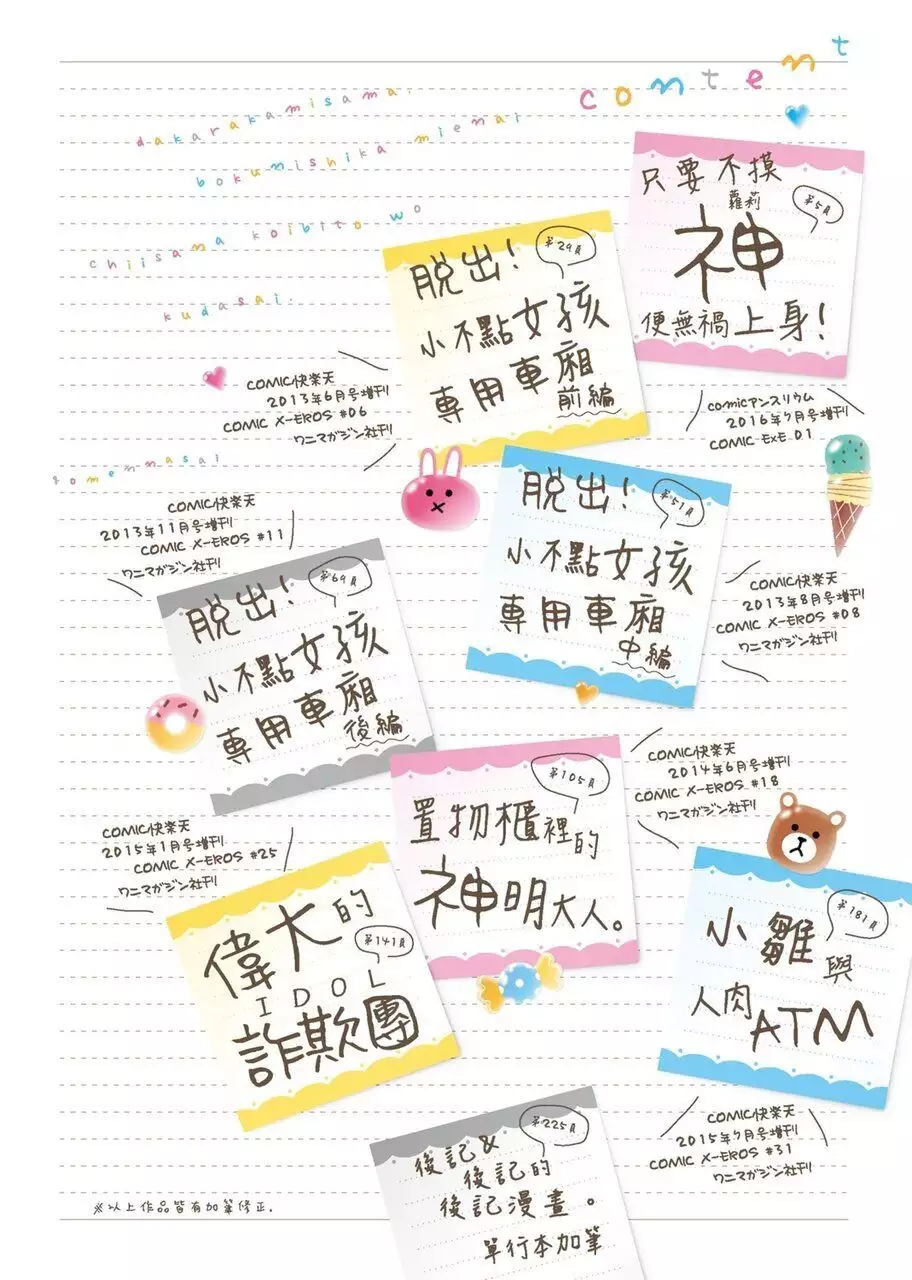 content
dakarakamisama.
bokunishika mienai
chiisana koibito wo
kudasai.
gomennasai
只要不摸
蘿莉
神
便無禍上身!
第5頁
comicアンスリウム
2016年7月号増刊
COMIC ExE 01
脱出!
小不點女孩
專用車廂
前編
第29頁
COMIC快楽天
2013年6月号増刊
COMIC X-EROS #06
ワニマガジン社刊
脱出!
小不點女孩
專用車廂
中編
第51頁
COMIC快楽天
2013年8月号増刊
COMIC X-EROS #08
ワニマガジン社刊
脱出!
小不點女孩
專用車廂
後編
第69頁
COMIC快楽天
2013年11月号増刊
COMIC X-EROS #11
ワニマガジン社刊
置物櫃裡的
神明大人。
第105頁
COMIC快楽天
2014年6月号増刊
COMIC X-EROS #18
ワニマガジン社刊
偉大的
IDOL
詐欺團
第141頁
COMIC快楽天
2015年1月号増刊
COMIC X-EROS #25
ワニマガジン社刊
小雛與
人肉ATM
第181頁
COMIC快楽天
2015年7月号増刊
COMIC X-EROS #31
ワニマガジン社刊
後記&
後記的
後記漫畫。
單行本加筆
第225頁
※以上作品皆有加筆修正.